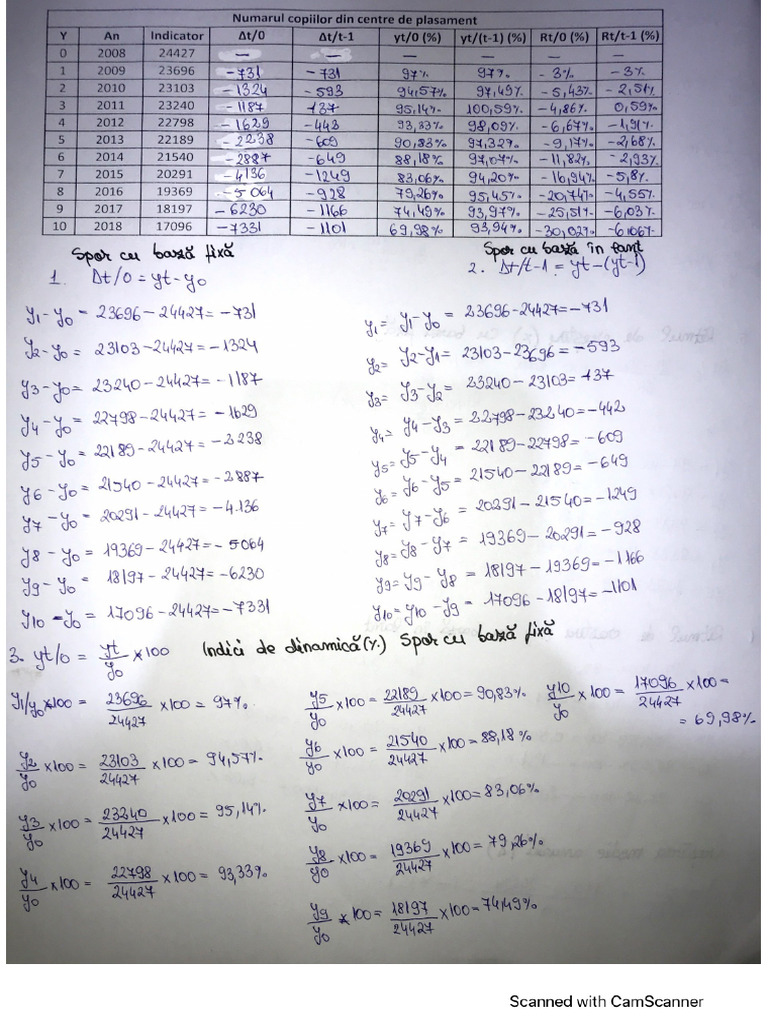 Numarul copiilor din centre de plasament
Y An Indicator Δt/0 Δt/t-1 yt/0 (%) yt/(t-1) (%) Rt/0 (%) Rt/t-1 (%)
0 2008 24427 — — — — — —
1 2009 23696 -731 -731 97% 97% -3% -3%
2 2010 23103 -1324 -593 94,57% 97,49% -5,43% -2,51%
3 2011 23240 -1187 +37 95,14% 100,59% -4,86% 0,59%
4 2012 22798 -1629 -443 93,33% 98,09% -6,67% -1,91%
5 2013 22189 -2238 -609 90,83% 97,32% -9,17% -2,68%
6 2014 21540 -2887 -649 88,18% 97,07% -11,82% -2,93%
7 2015 20291 -4136 -1249 83,06% 94,20% -16,94% -5,8%
8 2016 19369 -5064 -928 79,26% 95,45% -20,74% -4,55%
9 2017 18197 -6230 -1166 74,49% 93,97% -25,51% -6,03%
10 2018 17096 -7331 -1101 69,98% 93,94% -30,02% -6,06%
Spor cu bază fixă
Spor cu bază în lanț
1. Δt/0 = yt-y0
2. Δt/t-1 = yt-(yt-1)
y1-y0 = 23696-24427=-731
y2-y0= 23103-24427=-1324
y3-y0= 23240-24427=-1187
y4-y0= 22798-24427=-1629
y5-y0= 22189-24427=-2238
y6-y0= 21540-24427=-2887
y7-y0= 20291-24427=-4.136
y8-y0= 19369-24427=-5064
y9-y0= 18197-24427=-6230
y10-y0= 17096-24427=-7331
y1= y1-y0= 23696-24427=-731
y2= y2-y1= 23103-23696=-593
y3= y3-y2= 23240-23103=+37
y4= y4-y3= 22798-23240=-442
y5= y5-y4= 22189-22798=-609
y6= y6-y5= 21540-22189=-649
y7= y7-y6= 20291-21540=-1249
y8= y8-y7= 19369-20291=-928
y9= y9-y8= 18197-19369=-1166
y10= y10-y9= 17096-18197=-1101
3. yt/0 = yt/y0 ×100 Indici de dinamică(%) Spor cu bază fixă
y1/y0 ×100= 23696/24427 ×100= 97%
y2/y0 ×100= 23103/24427 ×100= 94,57%
y3/y0 ×100= 23240/24427 ×100= 95,14%
y4/y0 ×100= 22798/24427 ×100= 93,33%
y5/y0 ×100= 22189/24427 ×100= 90,83%
y6/y0 ×100= 21540/24427 ×100= 88,18%
y7/y0 ×100= 20291/24427 ×100= 83,06%
y8/y0 ×100= 19369/24427 ×100= 79,26%
y9/y0 ×100= 18197/24427 ×100= 74,49%
y10/y0 ×100= 17096/24427 ×100=
= 69,98%
Scanned with CamScanner